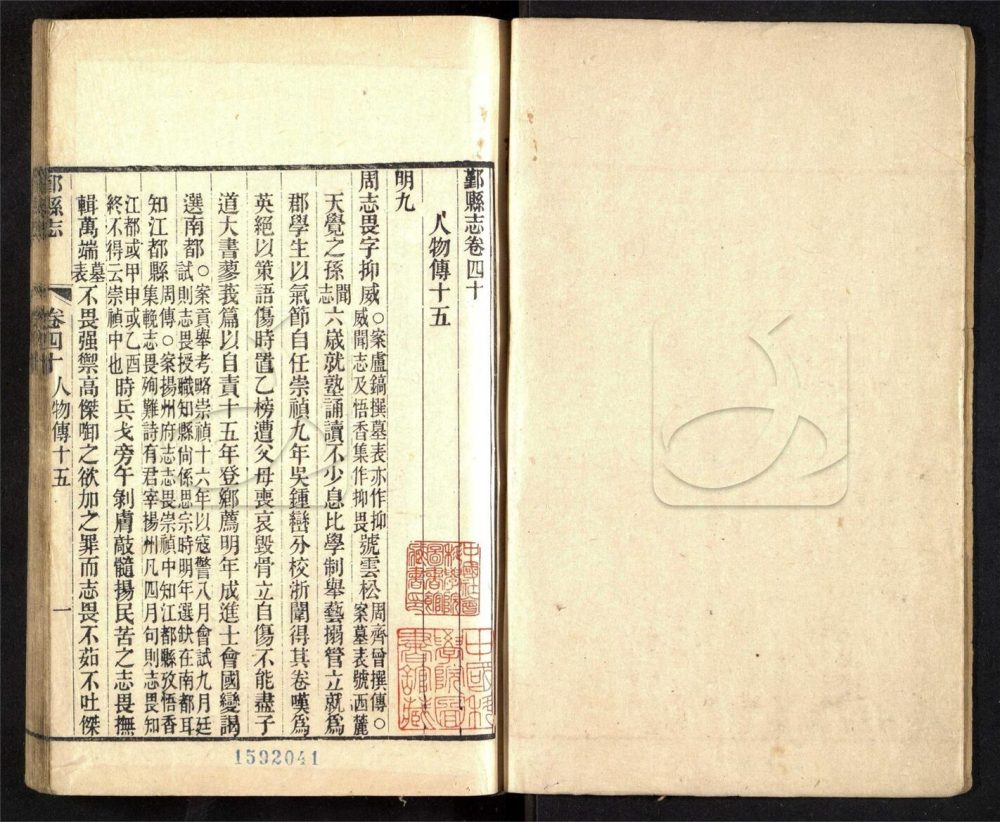 鄞縣志卷四十
人物傳十五
明九
周志畏字抑威〇案盧鎬撰墓表亦作抑威聞志及悟香集作抑畏號雲松周齊曾撰傳〇案墓表號西麓
天覺之孫聞志六歲就塾誦讀不少息比學制舉藝搦管立就爲
郡學生以氣節自任崇禎九年吳鍾巒分校浙闈得其卷嘆爲
英絕以策語傷時置乙榜遭父母喪哀毀骨立自傷不能盡子
道大書蓼莪篇以自責十五年登鄉薦明年成進士會國變謁
選南都〇案貢舉考略崇禎十六年以寇警八月會試九月廷試則志畏授職知縣尙係思宗時明年選缺在南都耳
知江都縣周傳〇案揚州府志志畏崇禎中知江都縣攷悟香集輓志畏殉難詩有君宰揚州凡四月句則志畏知
江都或甲申或乙酉終不得云崇禎中也時兵戈旁午剝膚敲髓揚民苦之志畏撫
輯萬端墓表不畏强禦高傑啣之欲加之罪而志畏不茹不吐傑
鄞縣志
卷四十
人物傳十五
一
中國科學院圖書館藏
1592041